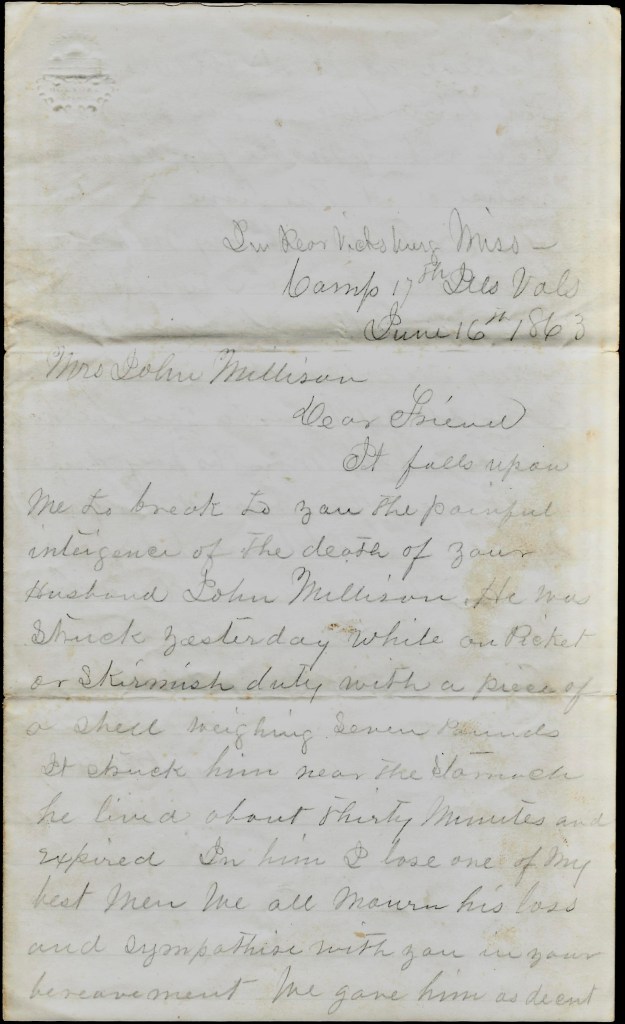 In Rear Vicksburg Miss —
Camp 17th Ills Vols
June 16st, 1863
Mrs John Millison
Dear Friend
It falls upon
me to break to you the painful
inteigence of the death of your
Husband John Millison. He was
Struck yesterday while on Picket
or Skirmish duty with a piece of
a shell weighing Seven Pounds
It struck him near the Stomach
he lived about thirty Minutes and
expired In him I lose one of My
best Men We all Mourn his loss
and Sympathise with you in your
bereavement We gave him as decent